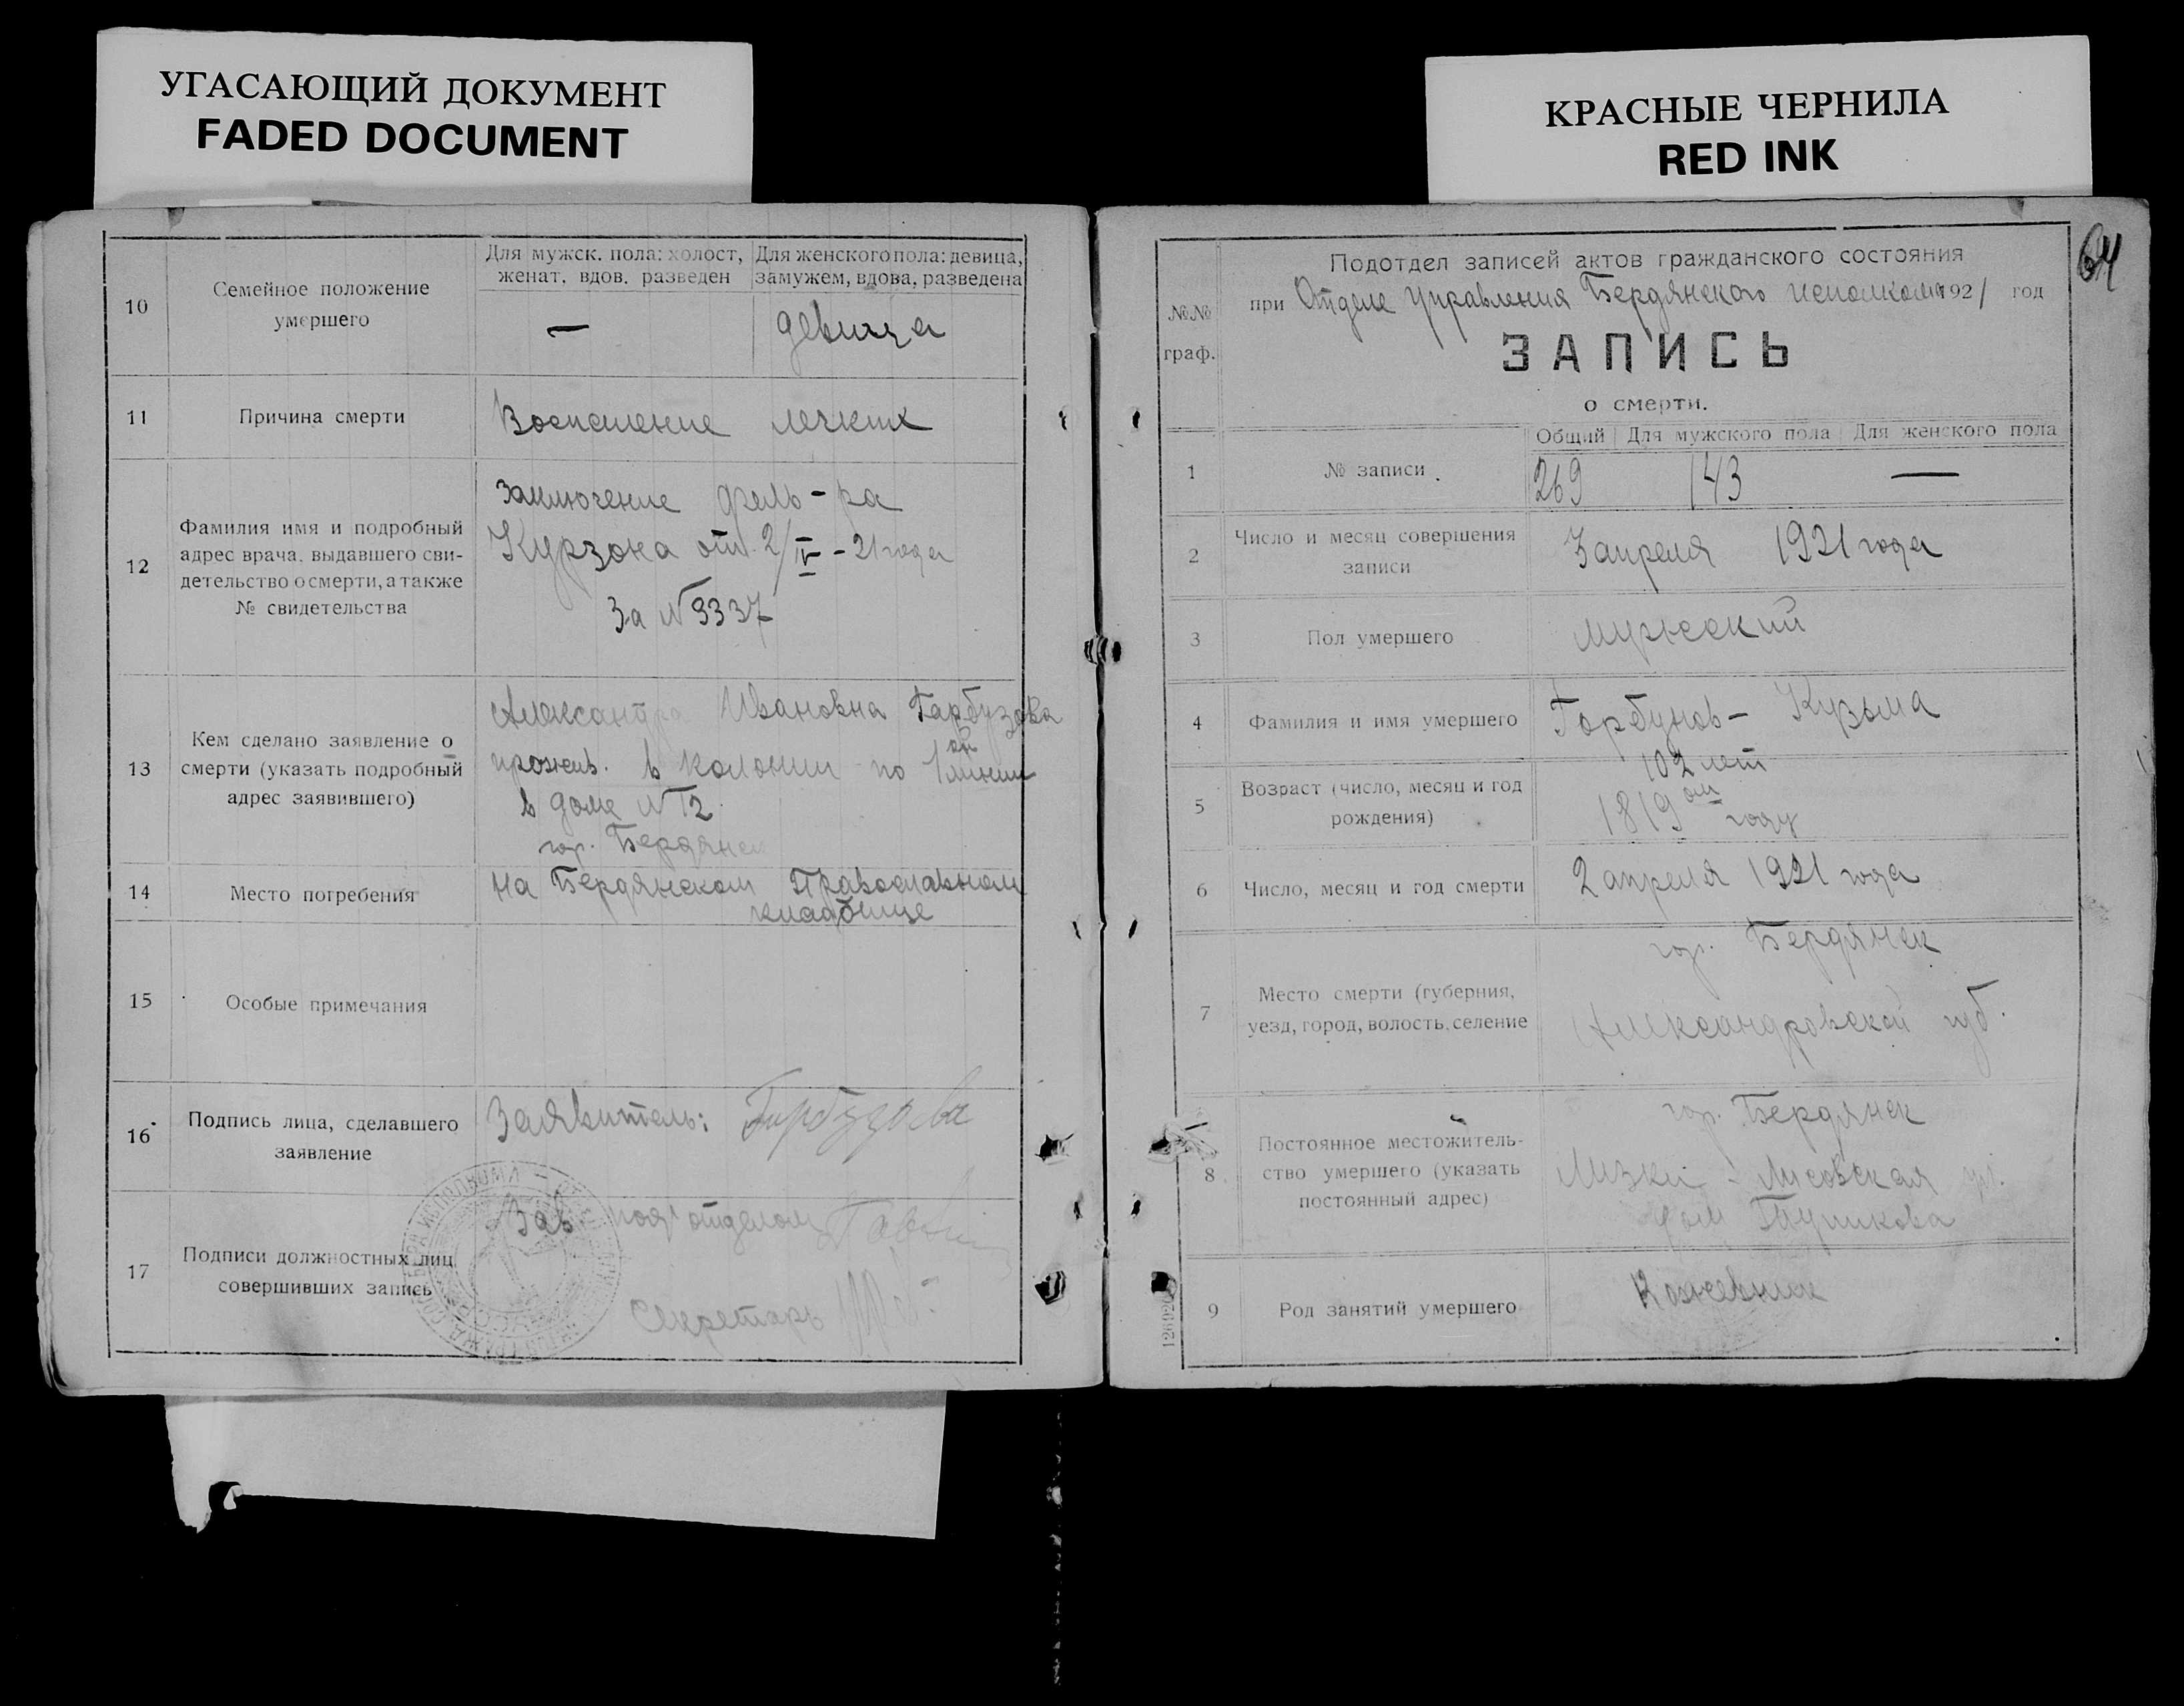 УГАСАЮЩИЙ ДОКУМЕНТ
FADED DOCUMENT
КРАСНЫЕ ЧЕРНИЛА
RED INK
10
Семейное положение
умершего
Для мужск. пола: холост,
женат, вдов. разведен
Для женского пола: девица,
замужем, вдова, разведена
—
девица
11
Причина смерти
Воспаление легких
12
Фамилия имя и подробный
адрес врача, выдавшего сви-
детельство о смерти, а также
№ свидетельства
Заключение фель-ра
Курзона от 2/IV-21 года
За N 3337
13
Кем сделано заявление о
смерти (указать подробный
адрес заявившего)
Александра Ивановна Гарбузова
прожив. в колонии по 1ой линии
в доме N 12
гор. Бердянск
14
Место погребения
на Бердянском Православном
кладбище
15
Особые примечания
16
Подпись лица, сделавшего
заявление
Заявитель: Гарбузова
17
Подписи должностных лиц
совершивших запись
Зав подотделом
Секретарь
64
№№
граф.
Подотдел записей актов гражданского состояния
при Отделе Управления Бердянского исполкома 1921 год
ЗАПИСЬ
о смерти.
Общий Для мужского пола Для женского пола
1
№ записи
269 143 —
2
Число и месяц совершения
записи
3 апреля 1921 года
3
Пол умершего
мужеский
4
Фамилия и имя умершего
Горбунов- Кузьма
5
Возраст (число, месяц и год
рождения)
102 лет
1819 ом году
6
Число, месяц и год смерти
2 апреля 1921 года
7
Место смерти (губерния,
уезд, город, волость, селение
гор. Бердянск
Александровской губ.
8
Постоянное местожитель-
ство умершего (указать
постоянный адрес)
гор. Бердянск
Лизки - Лисовская ул.
дом
9
Род занятий умершего
Кожевник